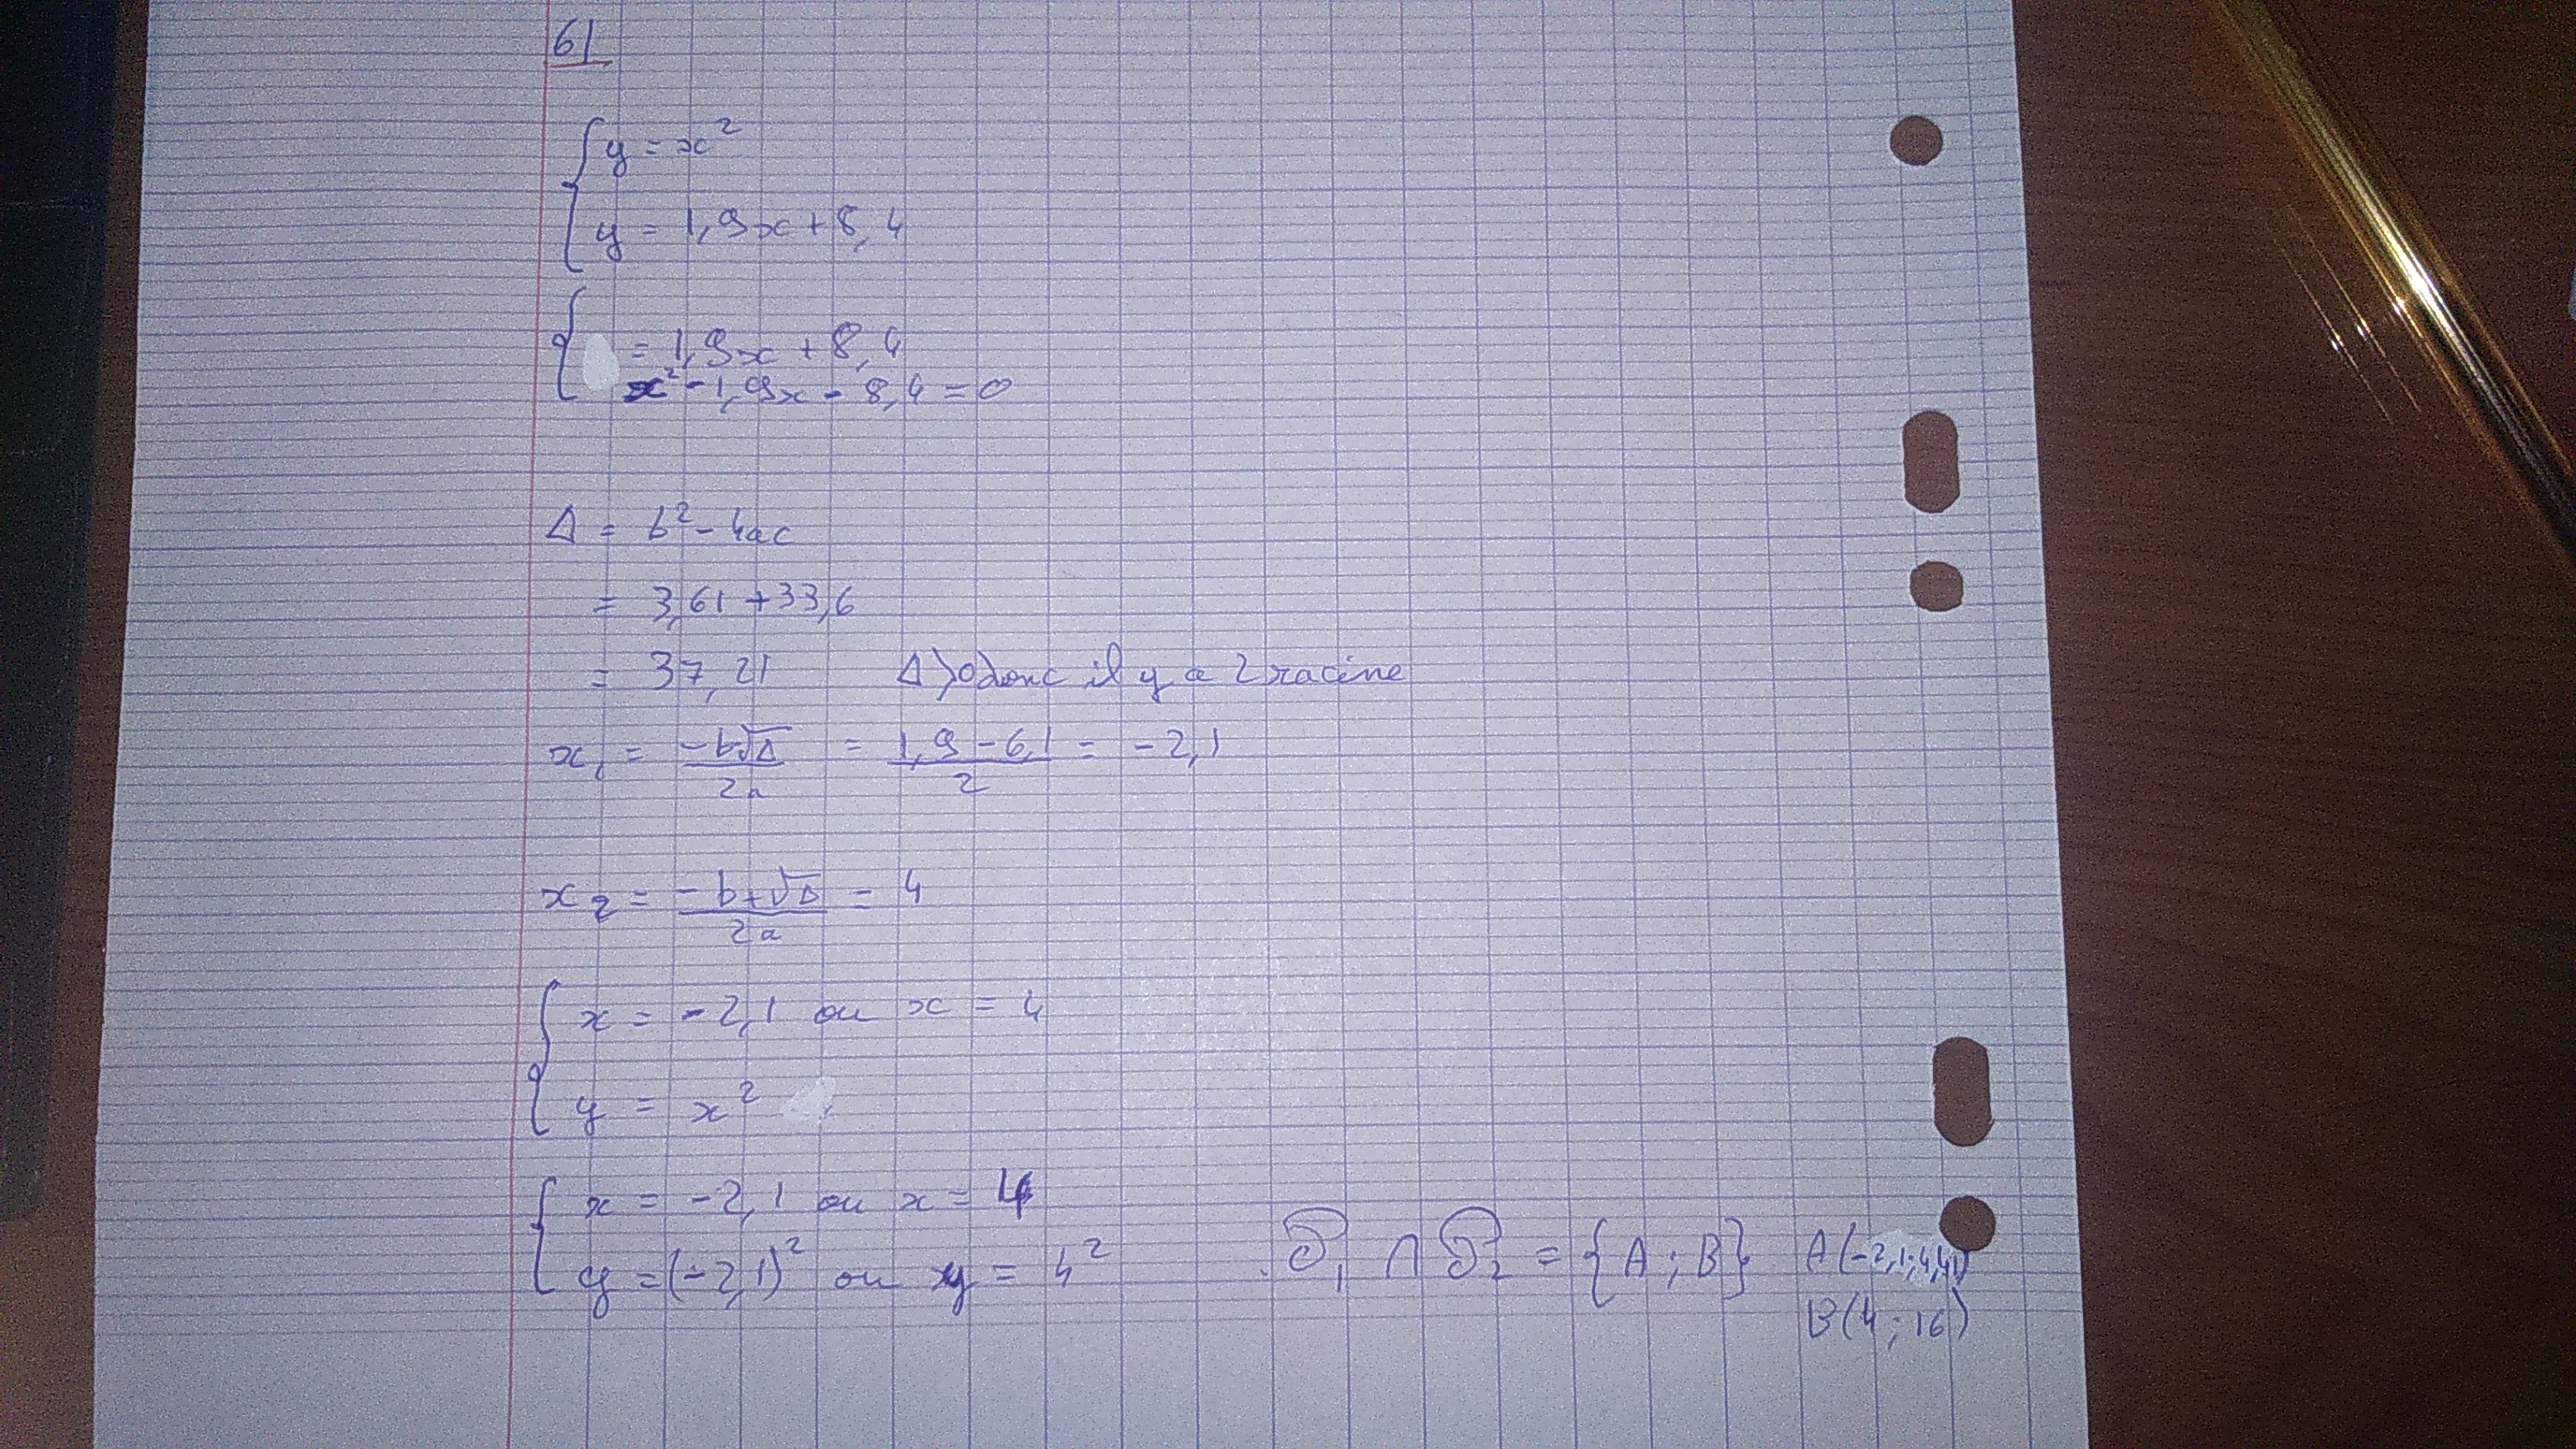 61
{ y = x²
{ y = 1,9x + 8,4
{ = 1,9x + 8,4
{ x² - 1,9x - 8,4 = 0
Δ = b² - 4ac
= 3,61 + 33,6
= 37,21 Δ>0 donc il y a 2 racine
x₁ = -b-√Δ / 2a = 1,9 - 6,1 / 2 = -2,1
x₂ = -b+√Δ / 2a = 4
{ x = -2,1 ou x = 4
{ y = x²
{ x = -2,1 ou x = 4
{ y = (-2,1)² ou y = 4²
P₁ ∩ P₂ = {A ; B} A(-2,1; 4,41)
B(4 ; 16)